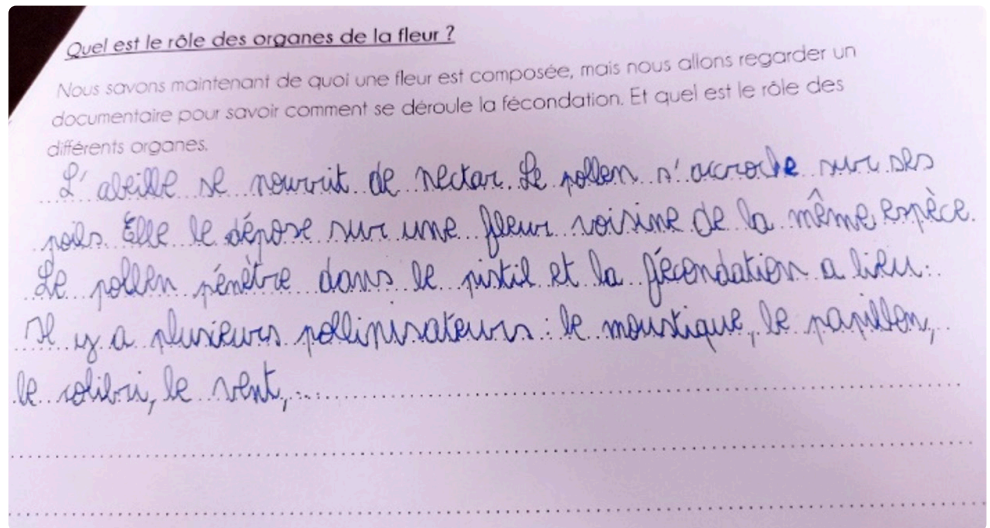 Quel est le rôle des organes de la fleur ?
Nous savons maintenant de quoi une fleur est composée, mais nous allons regarder un
documentaire pour savoir comment se déroule la fécondation. Et quel est le rôle des
différents organes.
L'abeille se nourrit de nectar. Le pollen s'accroche sur ses
poils. Elle le dépose sur une fleur voisine de la même espèce.
Le pollen pénètre dans le pistil et la fécondation a lieu.
Il y a plusieurs pollinisateurs : le moustique, le papillon,
le colibri, le vent, ...